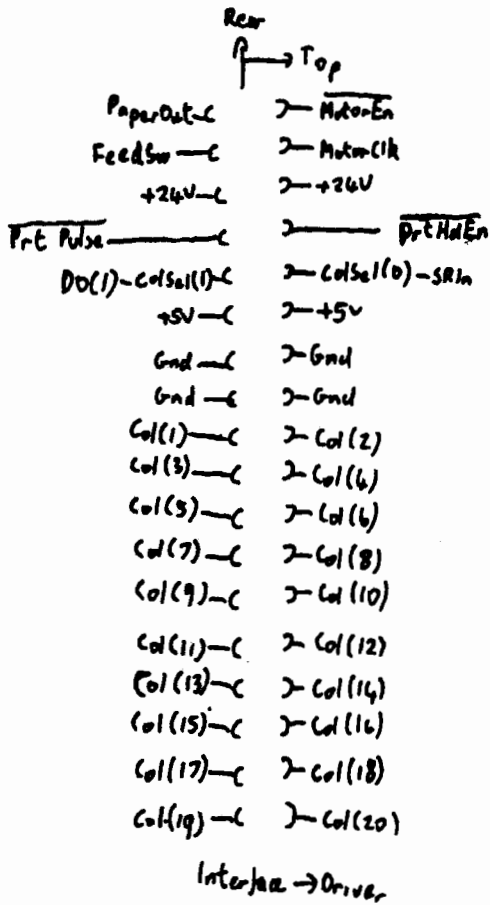 Rear
→ Top
PaperOut M̅o̅t̅o̅r̅E̅n̅
FeedSw MotorClk
+24V +24V
P̅r̅t̅ ̅P̅u̅l̅s̅e̅ P̅r̅t̅H̅d̅E̅n̅
DO(1)-ColSel(1) ColSel(0)-SRIn
+5V +5V
Gnd Gnd
Gnd Gnd
Col(1) Col(2)
Col(3) Col(4)
Col(5) Col(6)
Col(7) Col(8)
Col(9) Col(10)
Col(11) Col(12)
Col(13) Col(14)
Col(15) Col(16)
Col(17) Col(18)
Col(19) Col(20)
Interface → Driver